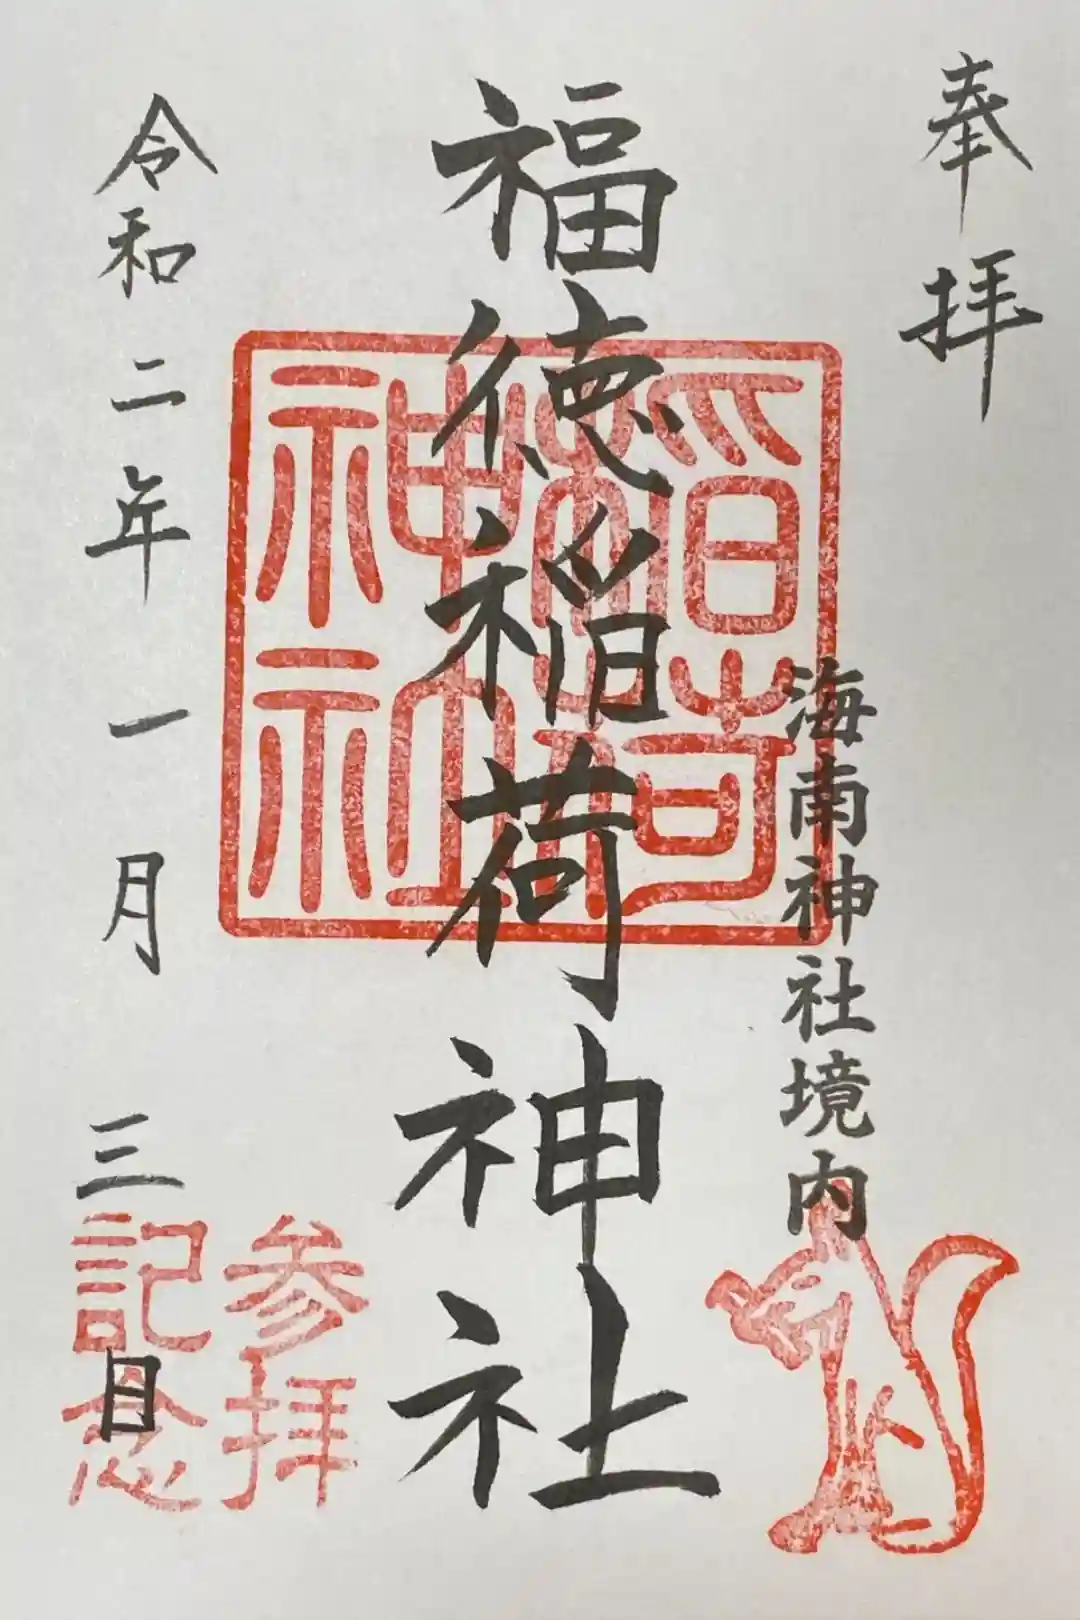 奉拝
海南神社境内
福徳稲荷神社
稲荷
神社
令和二年一月三日
参拝
記念